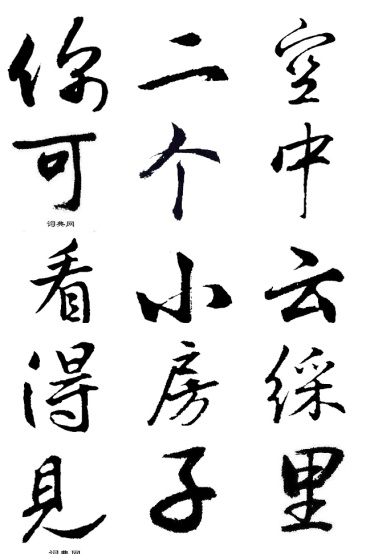 空中云綵里
二个小房子
你可看得见
词典网
词典网